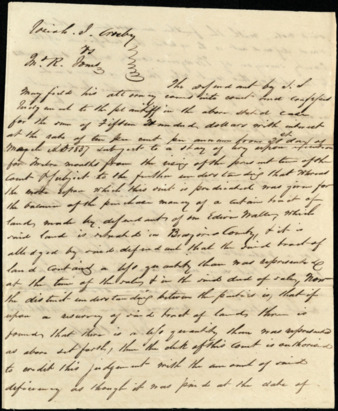 Josiah J. Crosby
vs
McR. Jones
The defendant by J. S.
May field his attorney comes into court and confesses
Judgment to the plaintiff in the above stated case
for the sum of Fifteen Hundred dollars with interest
at the rate of ten per cent per annum from 1st day of
March AD 1837 subject to a stay of execution
for twelve months from the rising of the present term of the
court & subject to the further understanding that whereas
the note upon which this suit is predicated was given for
the balance of the purchase money of a certain tract of
land, made by defendant of one Edwin Waller, which
said land is situated in Brazoria County, & it is
alledged by said defendant that the said tract of
land contains a less quantity than was represented
at the time of the sale, & in the said deed of sale, Now
the distinct understanding between the parties is, that if
upon a resurvey of said tract of land, there is
found, that there is a less quantity than was represented
as above set forth, then the clerk of this court is authorised
to credit this judgement with the amount of said
deficiency as though it was paid at the date of